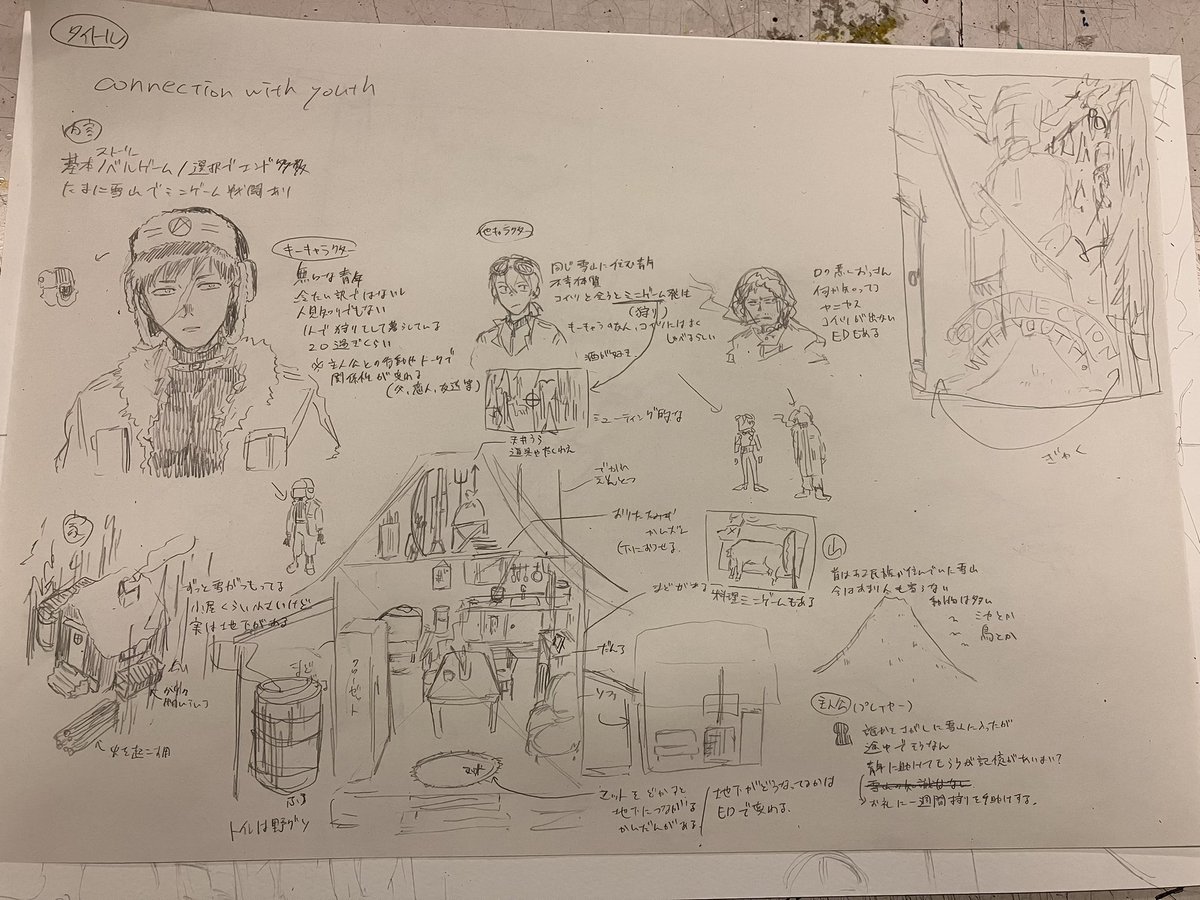 タイトル
connection with youth
内容
ストーリー
基本ノベルゲーム/選択でエンド多数
たまに雪山でミニゲーム戦闘あり
キーキャラクター
無口な青年
冷たい訳ではないし
人見知りでもない
1人で狩りをして暮らしている
20過ぎくらい
※主人公との行動やトークで
関係性が変わる
(父,恋人,友達等)
他キャラクター
同じ雪山に住む青年
不幸体質
コイツと会うとミニゲーム発生
(狩り)
キーキャラの友人、コイツにはよく
しゃべるらしい
酒が好き
シューティング的な
口の悪いおっさん
何か知ってる
ヤニカス
コイツが出ない
EDもある
CONNECTION
WITH YOUTH
ぎゃく
家
ずっと雪がつもってる
小屋くらい小さいけど
実は地下がある
火を起こす用
天井うら
道具がたくわえ
でかい
えんとつ
おりたたみ式
かいだん
(下におろせる
まどがある
だんろ
ソファ
クローゼット
まど
ふろ
トイレは野グソ
マット
マットをどかすと
地下につながる
かいだんがある
地下がどうなってるかは
EDで変わる。
料理ミニゲームもある
山
昔はある民族が住んでいた雪山
今はあまり人も寄らない
動物は多い
〜 シカとか
〜 鳥とか
主人公(プレイヤー)
誰かをさがしに雪山に入ったが
途中でそうなん
青年に助けてもらうが記憶があいまい?
お礼に一週間狩りを手助けする。